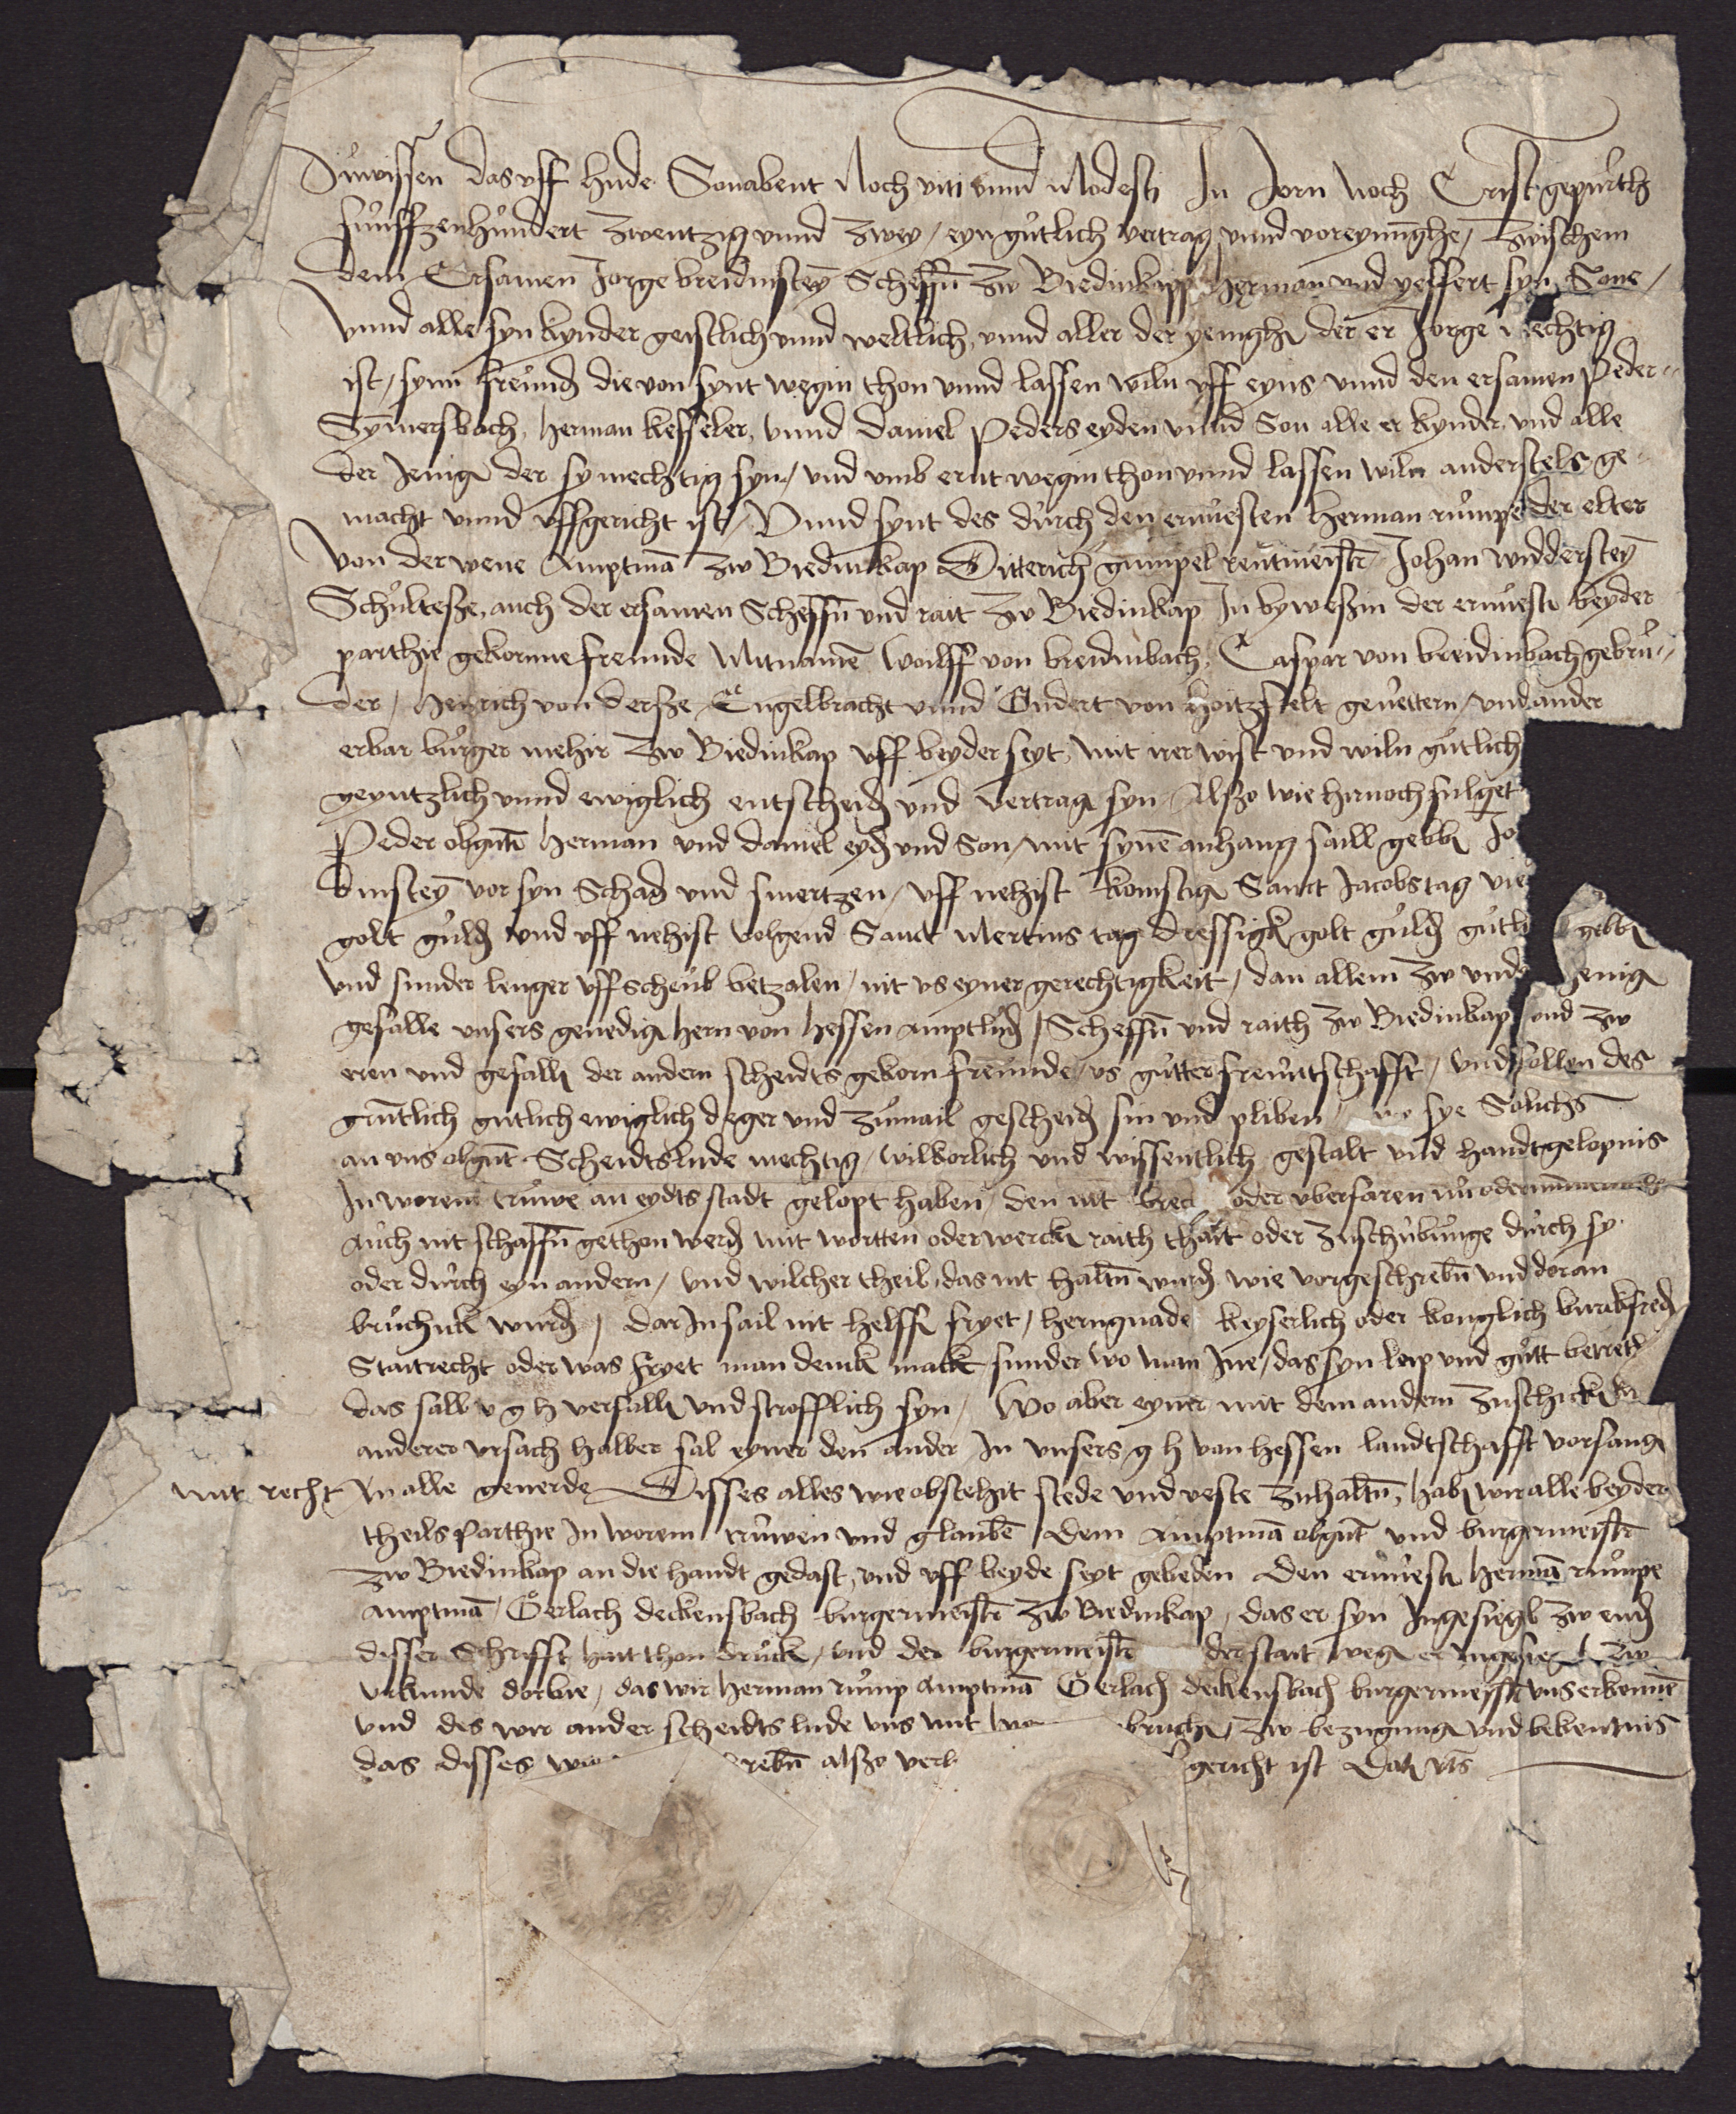 Zuwissen das uff hude Sonabent Noch viti vnnd Modesti In Jorn Noch Crist gepurth
funffzenhundert Zwentzig vnnd Zwey / eyn gutlich vertrag vnnd voreynunghe / Zwischem
dem Ersamen Jorge breidinsteyn Scheffn Zw Biedinkapp Herman vnd yeffert syn Sone /
Vnnd alle syn kynder geistlich vnnd weltlich, vnnd aller der yenigh der er Jorge mechtig
ist / synn freund die von synt wegin thon vnnd lassen wiln uff eyns vnnd den ersamen Peder
Symersbach, Herman kesseler, vnnd Daniel Peders eyden vnnd Son alle er kynder vnd alle
der Jenig der sy mechtig syn / vnd vmb ernt wegin thon vnnd lassen wiln anderstels ge
macht vnnd uffgericht ist / Vnnd synt des durch den ernuesten Herman rumpe der elter
von der wene Amptman Zw Biedinkap Ditterich gumpel rentmeistr Johan widdersteyn
Schultesze, auch der ersamen Scheffn vnd rait Zw Biedinkap In byweszin der ernuestn beyder
parthie gekornne freunde Mitnamen Woilff von breidinbach, Caspar von breidinbach gebru
der / Heinrich von dersze Engelbracht vnnd Gudert von Hoitzfelt geuettern / vnd ander
erbar burger mehir Zw Biedinkap uff beyder seyt, mit irer wist vnd wiln gutlich
geyntzlich vnnd ewiglich entscheid vnd vertrag syn Alszo wie hirnoch fulget
Peder obgnt Herman vnd daniel eyd vnd Son / mit synem anhang saill gebb Jo
dinsteyn vor syn Schad vnd smertzen / uff nehist komstig Sanct Jacobs tag vie
golt guld vnd uff nehist volgend Sanct Mertins tag dressigk golt guld gutli gebb
vnd sunder lenger uffscheub betzalen / nit us eyner gerechtigkeit / dan allein Zw vnde jenig
gefalle vnsers genedig hern von hessen amptlud / Scheffn vnd raith Zw Biedinkap vnd Zw
eren vnd gefalle der andern scheidts gekorn freunde / us gutter freuntschafft / vnd sollen des
gruntlich gutlich ewiglich deger vnd zumail gescheid sin vnd pliben sye Solichs
an vns obgnt Scheidtslude mechtig / wilkorlich vnd wissentlich gestalt vnd handtgelopnis
In worem truwe an eydts stadt gelopt haben / den nit brec oder vberfaren nu oder nummer
Auch nit schaffn gethon werd mit wortten oder wercke raith thait oder Zuschubunge durch sy
oder durch eyn andern / vnd wilcher theil das nit haltn wurd wie vorgeschrebn vnd doran
bruchnk wurd / dar In sail nit helffe fryet / hern gnade keyserlich oder konglich burkfred
Staitrecht oder was fryet man denck mack sunder wo man Ine / das syn leip vnd gutt betreth
das sall v g h verfalle vnd strofflich syn / Wo aber eyner mit dem andern Zuschicken
anderer vrsach halber sal eyner den ander In vnsers g h von hessen landtschafft vorfang
mit recht In alle geuerde Disses alles wie obstehit stede vnd veste Zuhaltn, hab wir alle beyder
theils parthie In worem truwen vnd glauben dem Amptman obgnt vnd burgermeistr
Zw Biedinkap an die handt gedast, vnd uff beyde seyt gebeden den ernuestn Herman rumpe
Amptman / Gerlach deckensbach burgermeistr Zw Biedinkap / das er syn Ingesiegl Zw end
disser Schrifft hait thon druck / vnd der burgermeistr der stait weg er Ingesiegl Zw
vrkunde dorbie / das wir Herman rump Amptman Gerlach deckensbach burgermeistr vns erkennen
vnd des wir ander scheidtslude vns mit bruche / Zw bezugung vnd bekentnis
das disses rebn alszo gericht ist Dat vts